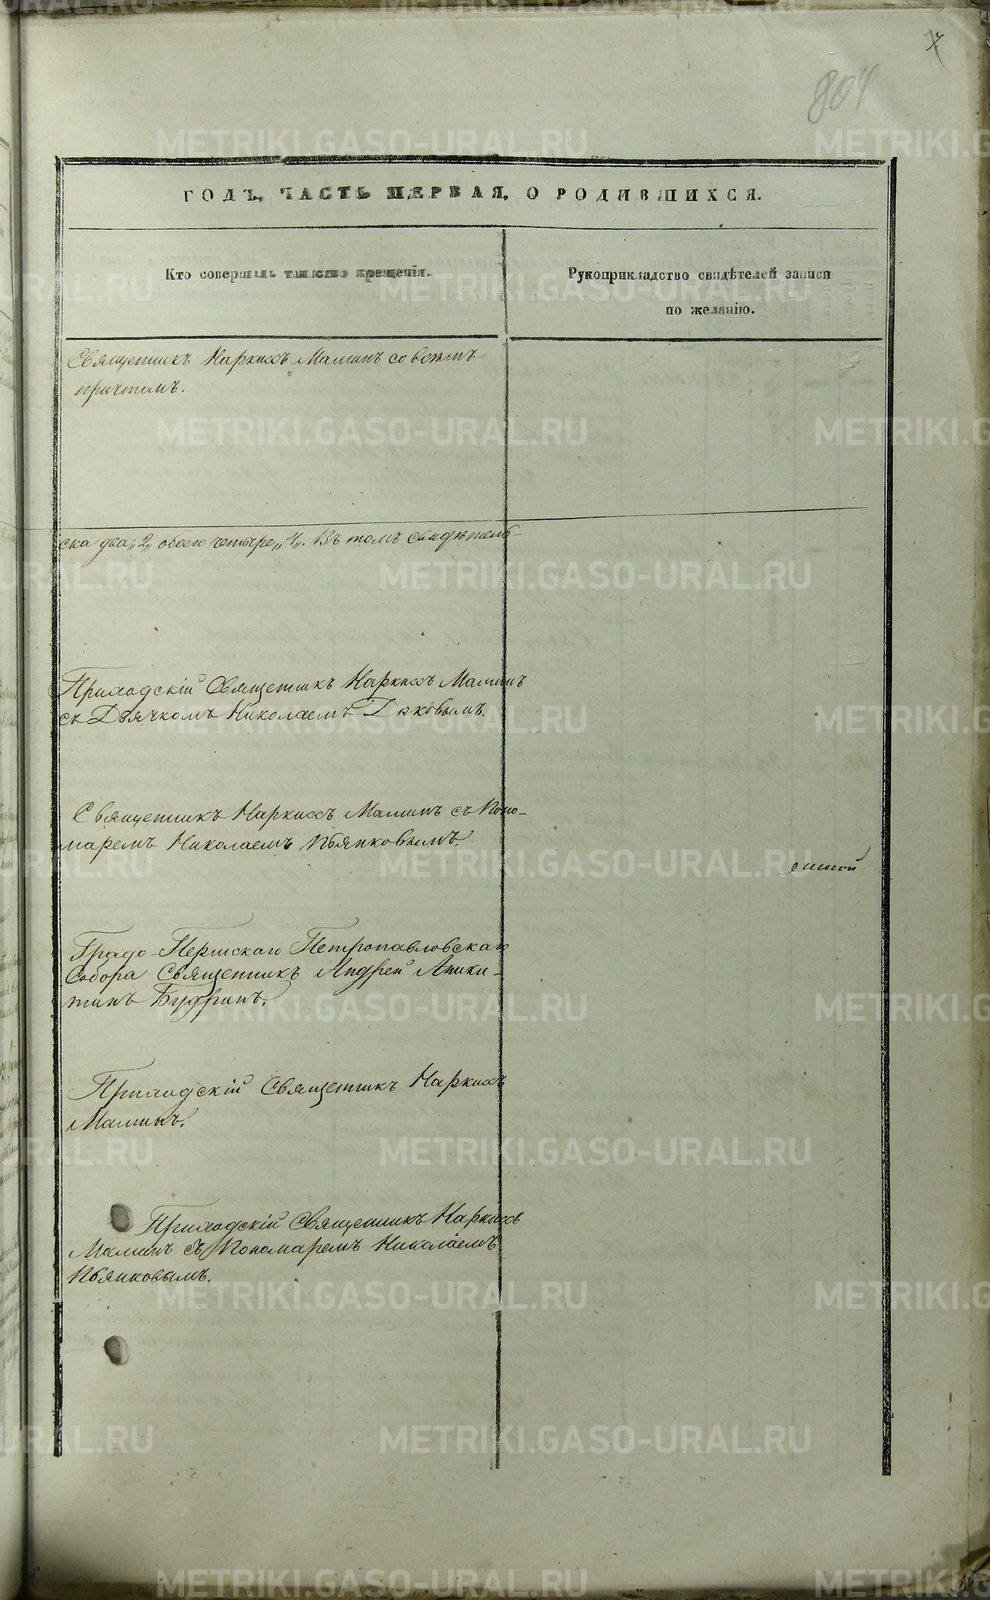 7
804
ГОДЪ, ЧАСТЬ ПЕРВАЯ, О РОДИВШИХСЯ.
Кто совершалъ таинство крещенія.
Рукоприкладство свидѣтелей записи
по желанію.
Священникъ Наркисъ Маминъ со всѣмъ
причтомъ.
ска два „2„ обоего четыре „4„. Въ томъ свидѣтель-
Приходскій Священникъ Наркисъ Маминъ
съ Дьячкомъ Николаемъ
Священникъ Наркисъ Маминъ съ Поно-
маремъ Николаемъ Пьянковымъ.
Градо-Пермскаго Петропавловскаго
Собора Священникъ Андрей Аники-
тинъ Будринъ.
Приходскій Священникъ Наркисъ
Маминъ.
Приходскій Священникъ Наркисъ
Маминъ съ Пономаремъ Николаемъ
Пьянковымъ.
METRIKI.GASO-URAL.RU